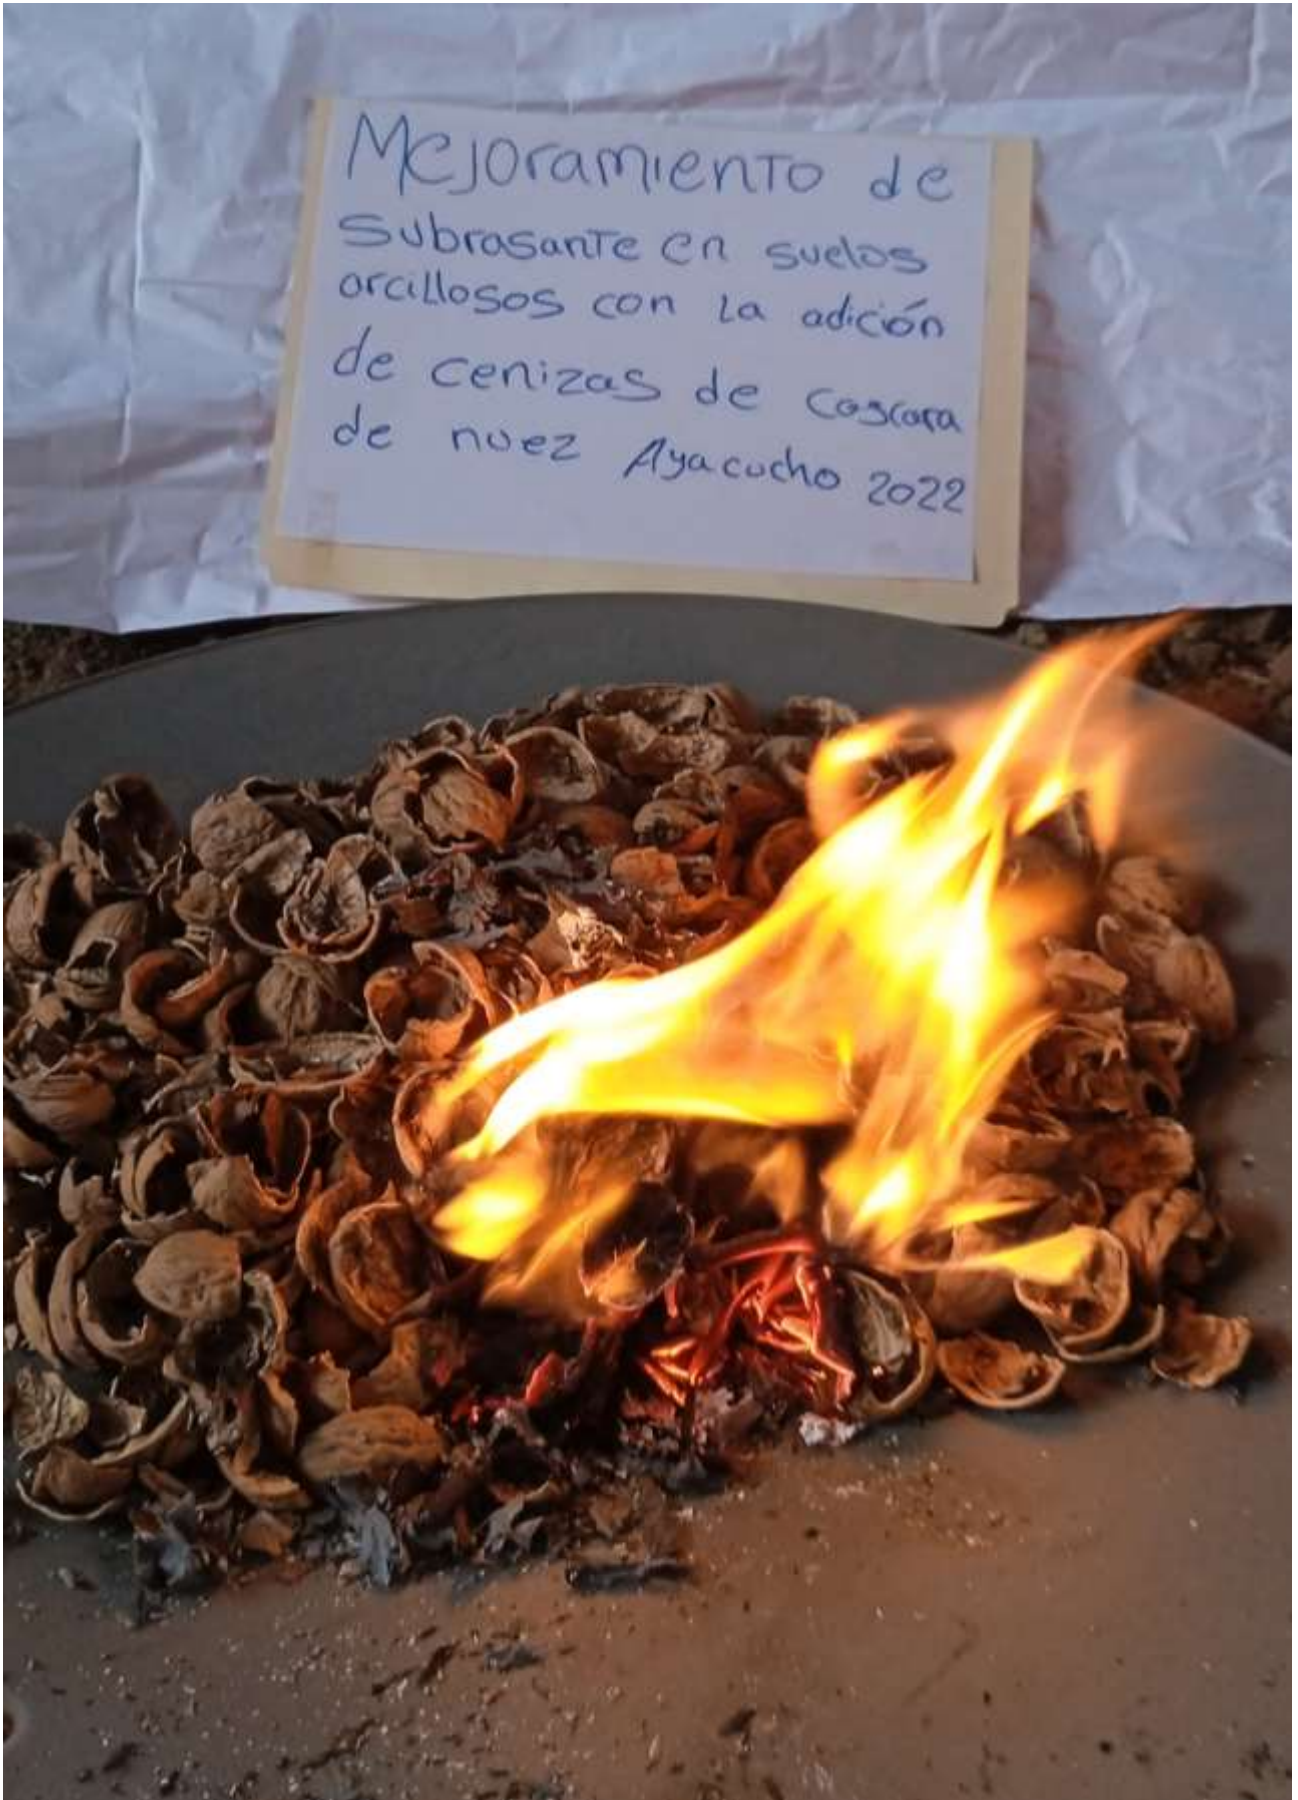 Mejoramiento de
subrasante en suelos
arcillosos con la adición
de cenizas de coscara
de nuez Ayacucho 2022